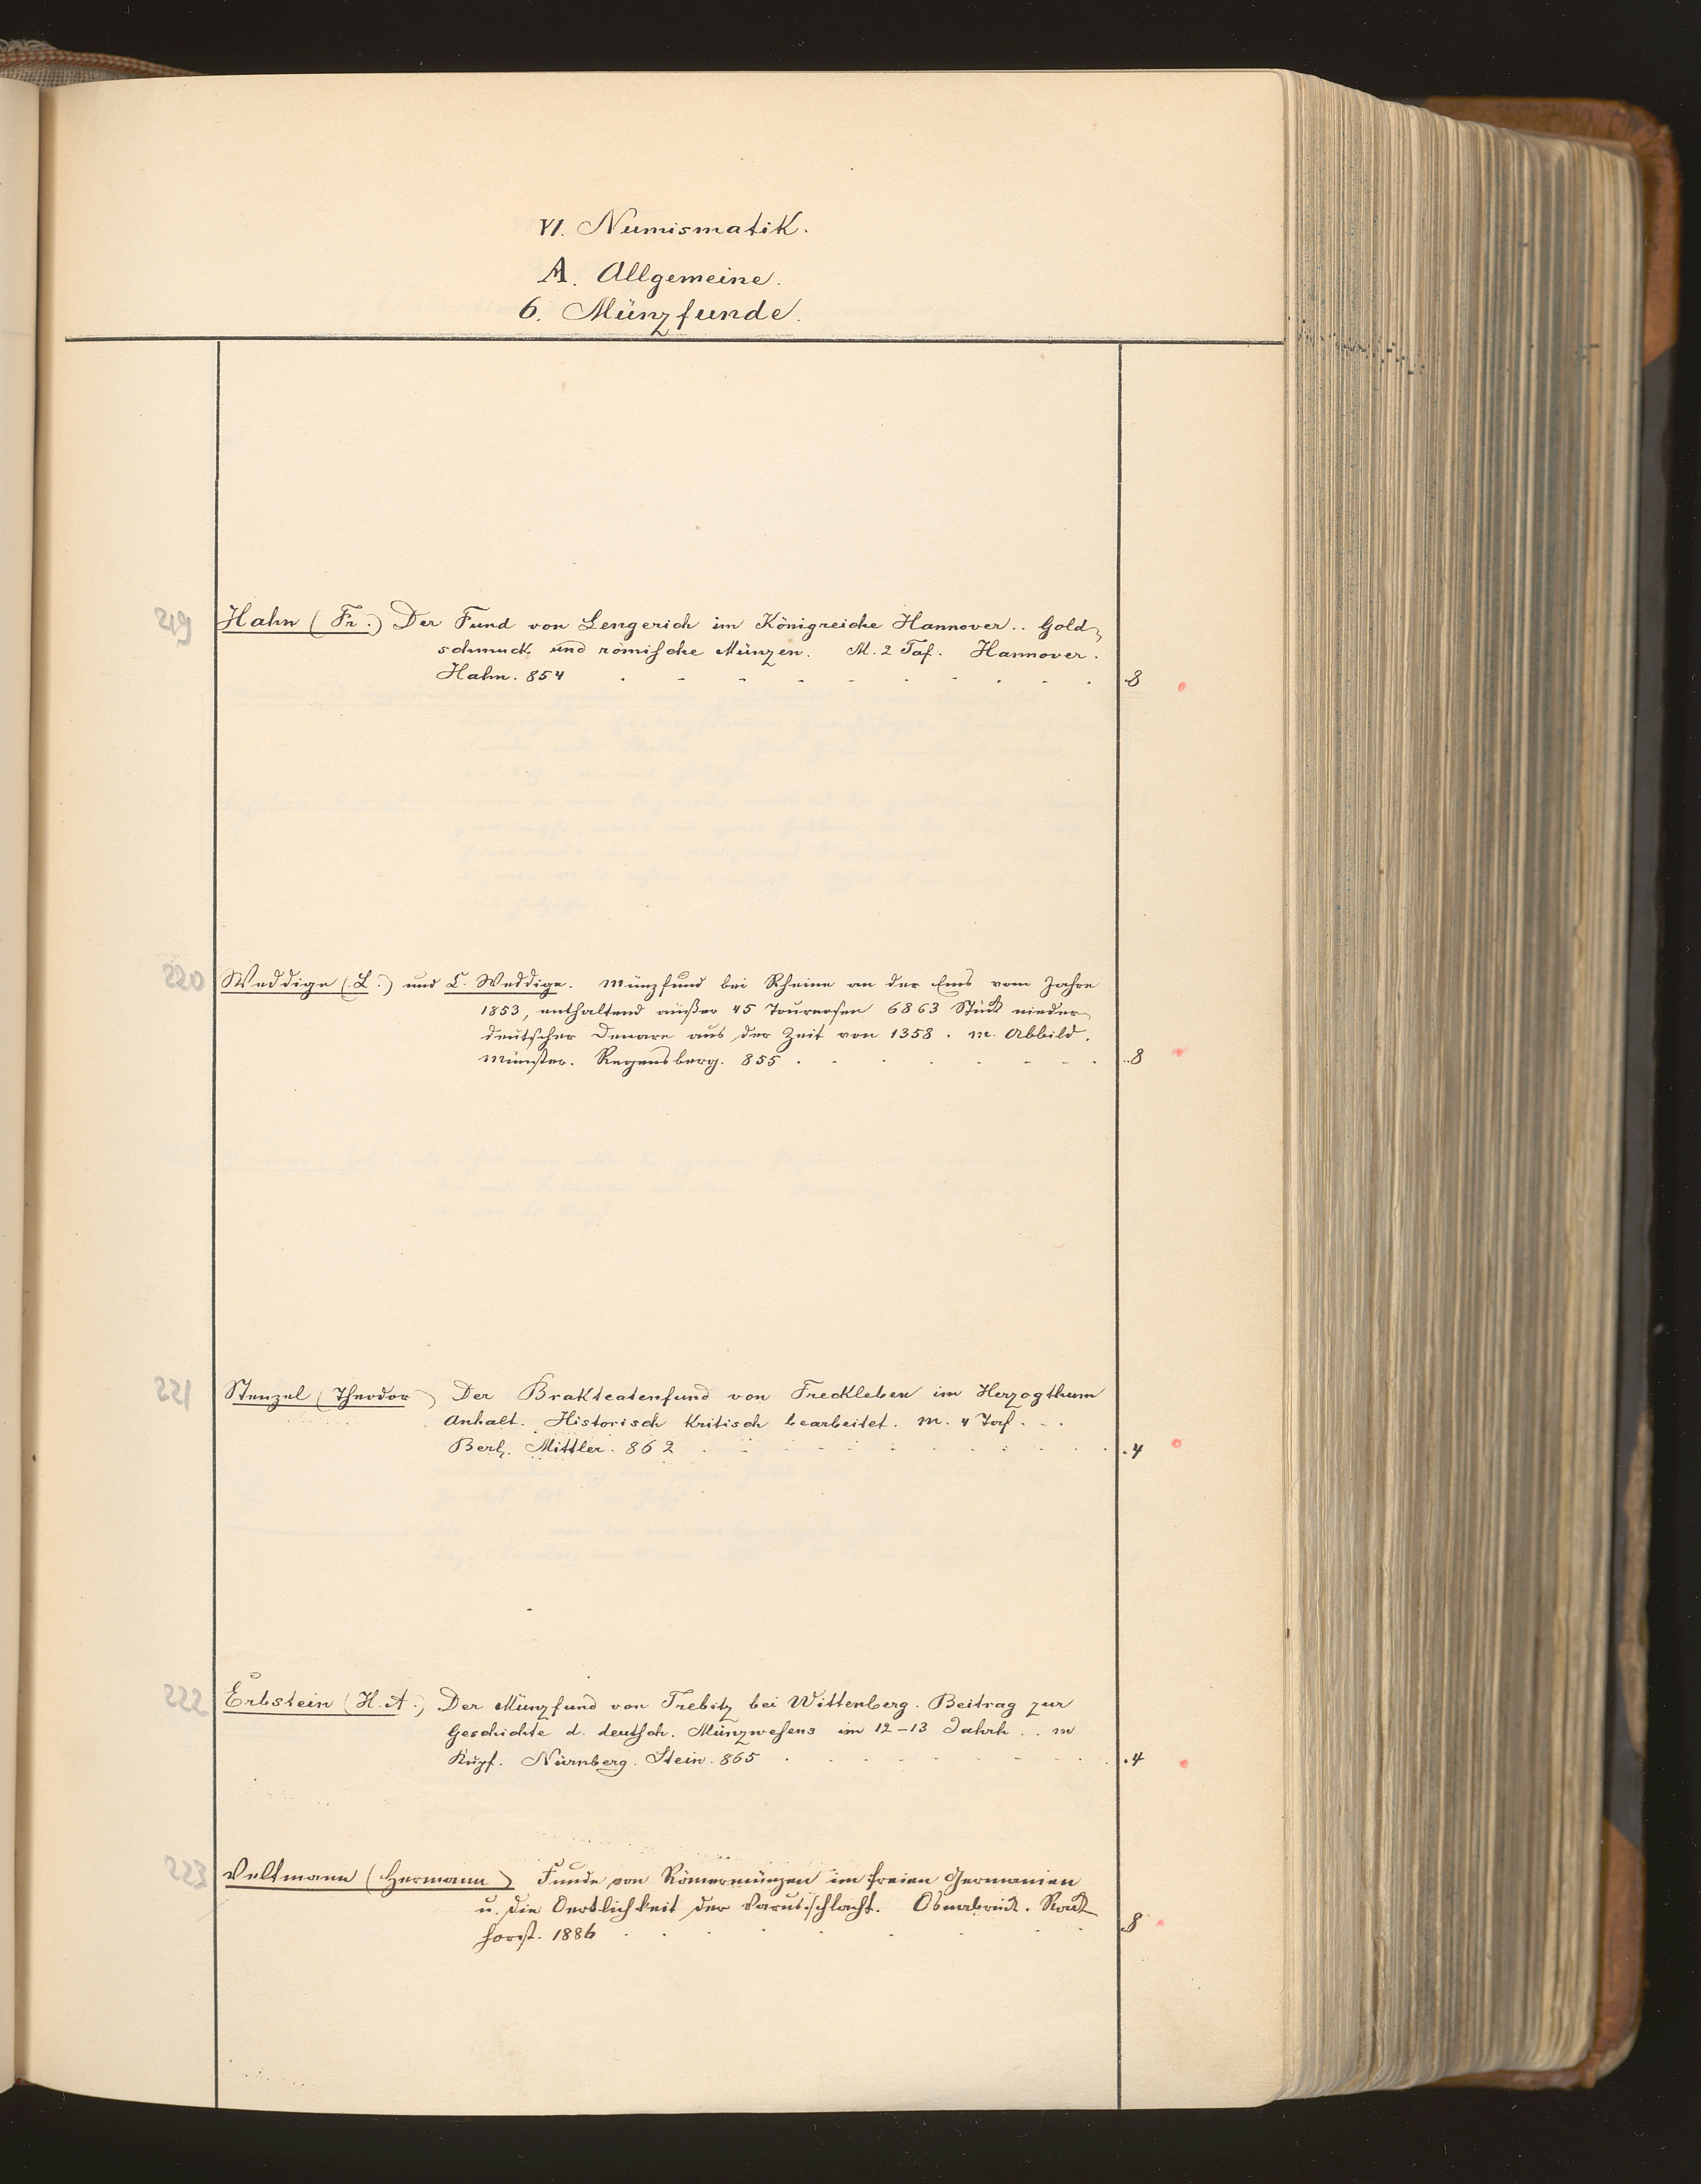 VI. Numismatik.
A. Allgemeine.
6. Münzfunde.
219 Hahn (Fr.) Der Fund von Lengerich im Königreiche Hannover.. Gold-
schmuck und römische Münzen. M. 2 Taf. Hannover.
Hahn. 854 8
220 Weddige (L.) und C. Weddige. Münzfund bei Rheine an der Ems vom Jahre
1853, enthaltend außer 45 Tournosen 6863 Stück nieder
deutscher Denare aus der Zeit von 1358. m. Abbild.
Münster. Regensberg. 855 8
221 Stenzel (Theodor) Der Brakteatenfund von Freckleben im Herzogthum
Anhalt. Historisch Kritisch bearbeitet. m. 4 Taf.
Berl. Mittler. 862 4
222 Erbstein (H. A.) Der Münzfund von Trebitz bei Wittenberg. Beitrag zur
Geschichte d. deutsch. Münzwesens im 12-13 Jahrh.. m
Kupf. Nürnberg. Stein. 865 4
223 Veltmann (Hermann) Funde von Römermünzen im freien Germanien
u. die Oertlichkeit der Varusschlacht. Osnabrück. Rack
horst. 1886 8